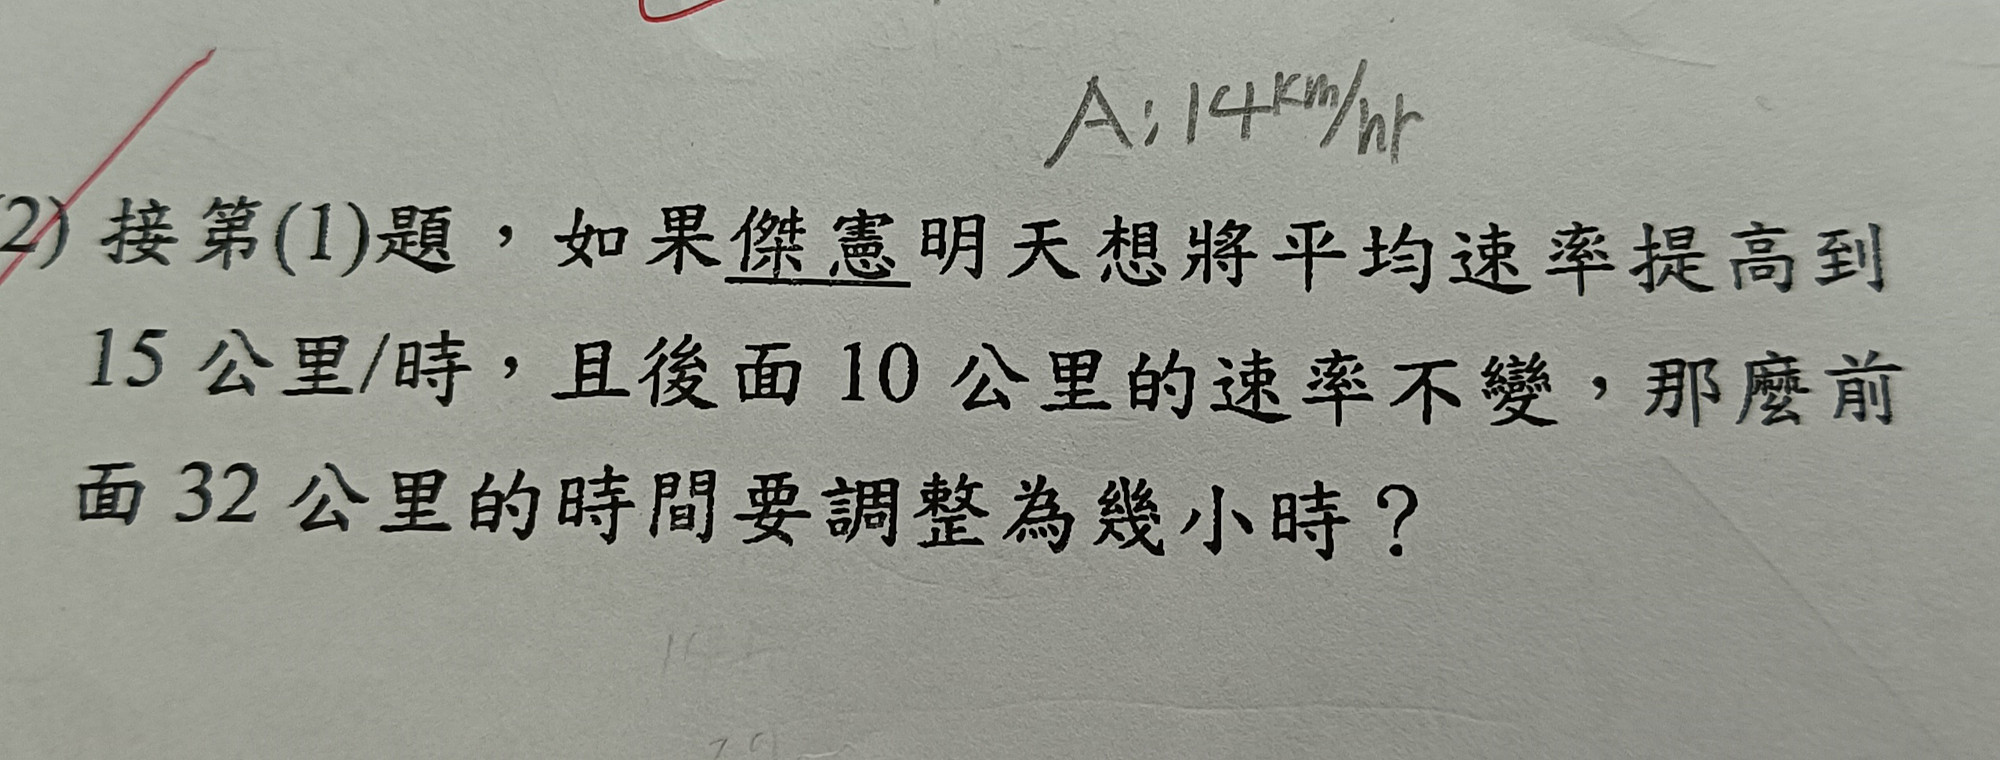 A:14km/hr
(2) 接第(1)題，如果傑憲明天想將平均速率提高到
15 公里/時，且後面 10 公里的速率不變，那麼前
面 32 公里的時間要調整為幾小時？